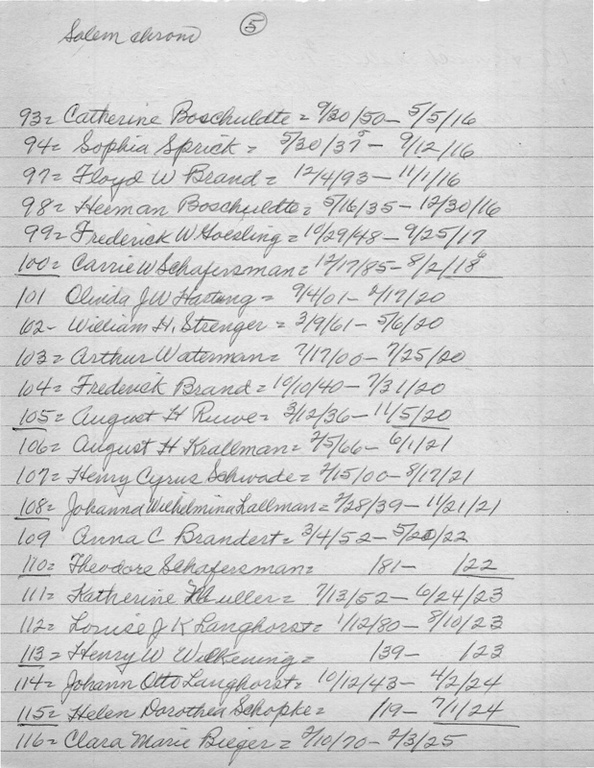 Salem chrono
5
93= Catherine Boschuldte = 9/20/50 - 5/5/16
94= Sophia Sprick = 5/30/37 - 9/12/16
97= Floyd W Brand = 12/4/93 - 11/1/16
98= Herman Boschuldte = 5/16/35 - 12/30/16
99= Frederick W Goesling = 10/29/48 - 9/25/17
100= Carrie W Schafersman = 12/17/85 - 8/2/18
101 Olinda J W Hastung = 9/4/01 - 2/17/20
102- William H. Strenger = 3/9/61 - 5/6/20
103= Arthur Waterman = 7/17/00 - 7/25/20
104= Frederick Brand = 10/10/40 - 7/31/20
105= August H Ruwe = 3/12/36 - 11/5/20
106= August H Krallman = 2/5/66 - 6/1/21
107= Henry Cyrus Schwade = 2/15/00 - 8/17/21
108= Johanna Wilhelmina Lallman = 2/28/39 - 11/21/21
109 Anna C Brandert = 3/4/52 - 5/20/22
110= Theodore Schafersman = /81- /22
111= Katherine Muller = 7/13/52 - 6/24/23
112= Louise J K Langhorst = 1/12/80 - 8/10/23
113= Henry W Wilkening = /39- /23
114= Johann Otto Langhorst = 10/12/43 - 4/2/24
115= Helen Dorothea Schopke = /19- 7/1/24
116= Clara Marie Bieger = 2/10/70 - 2/3/25